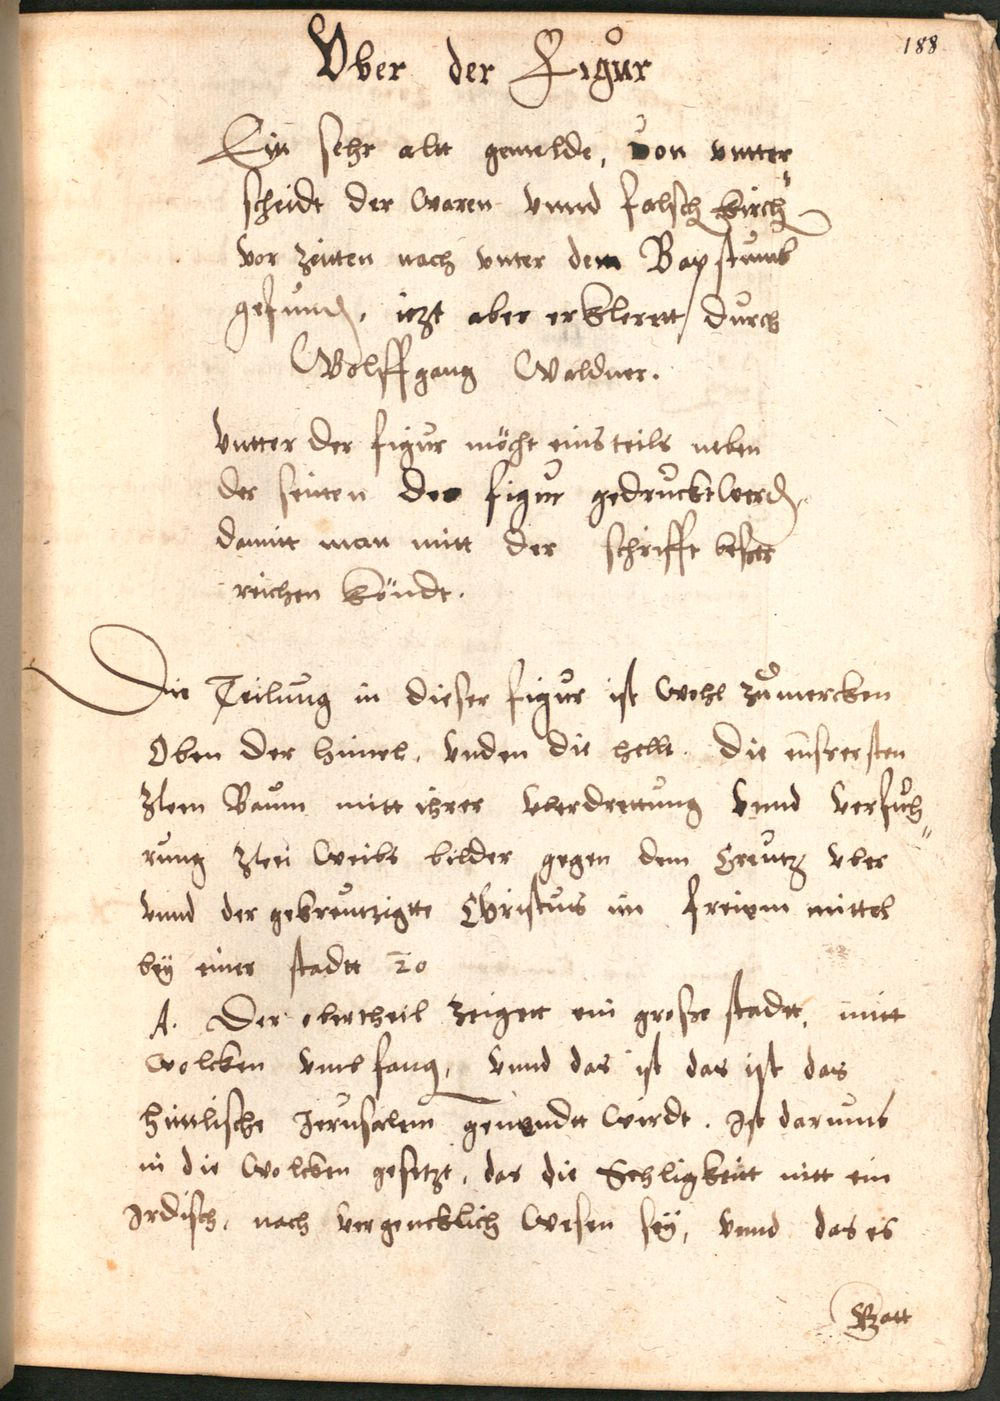 188
Vber der Figur
Ein sehr altt gemelde, von vntter
scheidt der waren vnnd falsch kirch
vor zeitten noch vnter dem Bapstumb
gefund, itzt aber erklerett / durch
Wolffgang Waldner.
Vntter der figur möcht eins teils neben
der seitten der figur gedruckt werd,
damitt man mitt der schrifft besser
reichen köndt.
Die Teilung in dieser figur ist wohl zumercken
Oben der himel, vnden die helle. Die eusersten
zween Baum mitt ihrer vberdrettung vnnd verfuh=
rung zwei weibs bilder gegen dem Creutz vber
vnnd der gekreutzigtte Christus im freiem mittel
bey einer stadtt
A. Der obertheil zeigett ein grosse stadtt, mitt
wolcken vmbfang, vnnd das ist das ist das
himlische Jerusalem genendtt wirdt. Ist darumb
in die wolcken gesetzt, das die Sehligkeitt nitt ein
Irdisch, noch vergencklich wesen sey, vnnd das es
Gott